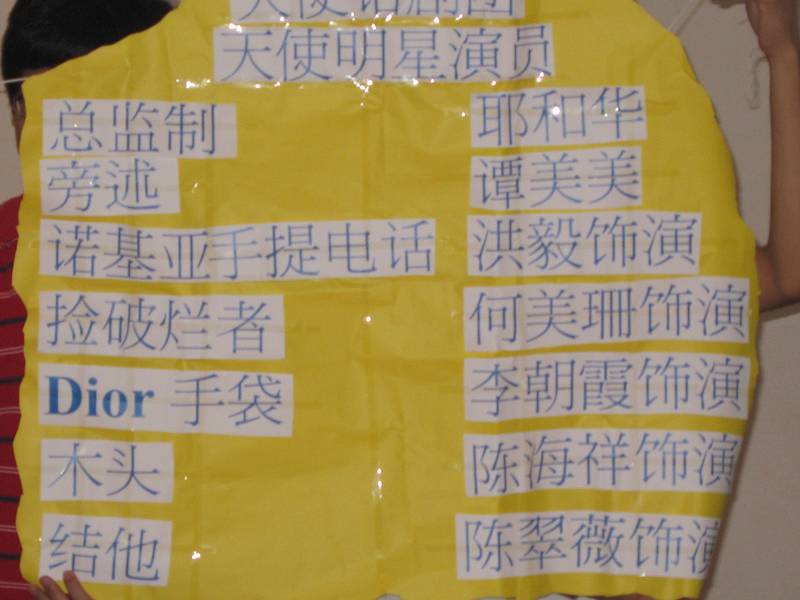 天使话剧团
天使明星演员
总监制 耶和华
旁述 谭美美
诺基亚手提电话 洪毅饰演
捡破烂者 何美珊饰演
Dior 手袋 李朝霞饰演
木头 陈海祥饰演
结他 陈翠薇饰演